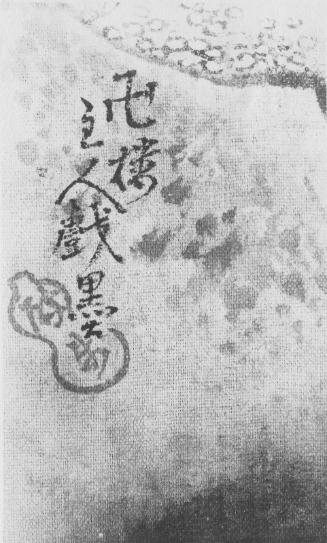 卍樓
主人戲墨